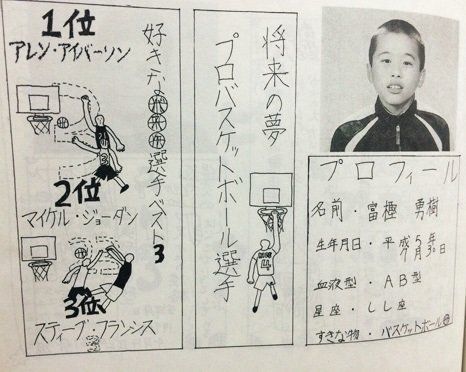 プロフィール
名前・富樫 勇樹
生年月日・平成5年7月30日
血液型・AB型
星座・しし座
すきな物・バスケットボール
将来の夢
プロバスケットボール選手
4
好きな選手ベスト3
1位
アレン・アイバーソン
2位
マイケル・ジョーダン
3位
スティーブ・フランシス